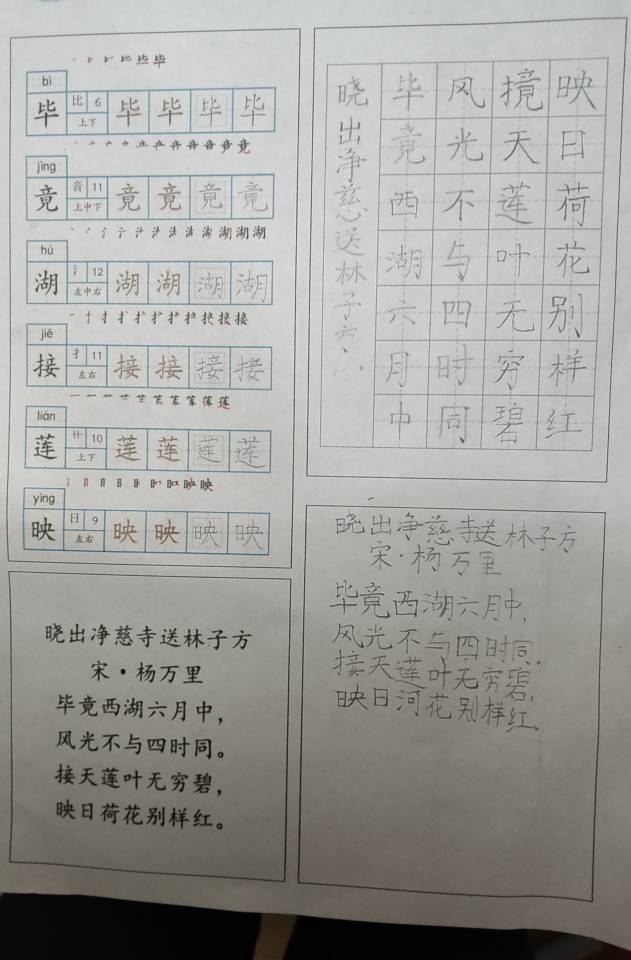 bì
毕 比 6 上下 毕 毕 毕 毕
jìng
竟 音 11 上中下 竟 竟 竟 竟
hú
湖 氵 12 左中右 湖 湖 湖 湖
jiē
接 扌 11 左右 接 接 接 接
lián
莲 艹 10 上下 莲 莲 莲 莲
yìng
映 日 9 左右 映 映 映 映
晓出净慈送林子方
毕竟西湖六月中
风光不与四时同
摬天莲叶无穷碧
映日荷花别样红
晓出净慈寺送林子方
宋·杨万里
毕竟西湖六月中，
风光不与四时同。
接天莲叶无穷碧，
映日荷花别样红。
晓出净慈寺送林子方
宋·杨万里
毕竟西湖六月中，
风光不与四时同。
接天莲叶无穷碧，
映日河花别样红。